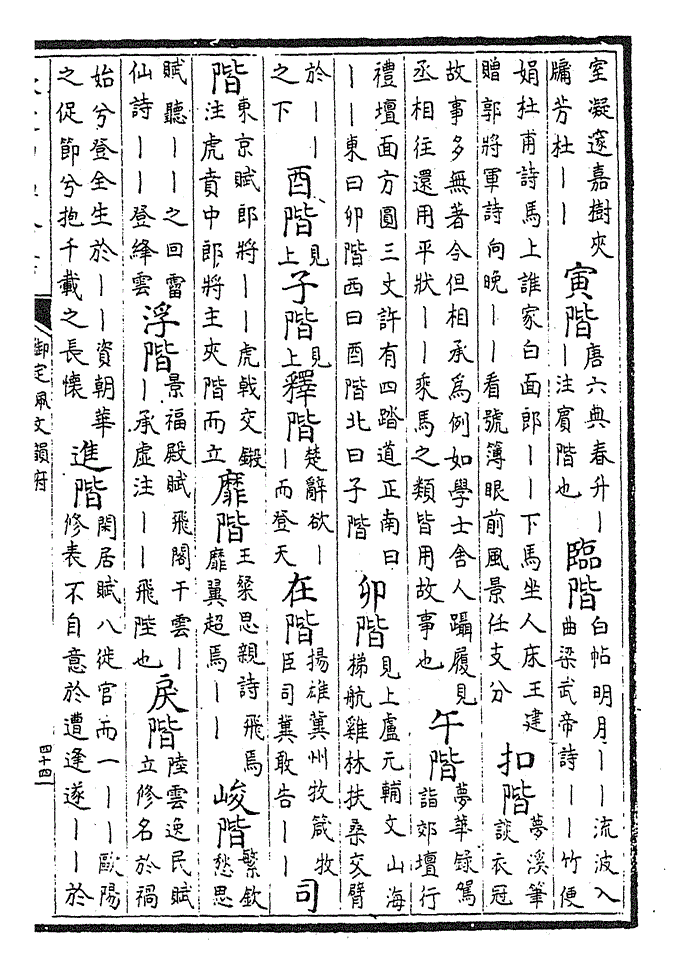 室凝邃嘉樹夾
牖芳杜丨丨
寅階
唐六典春升丨
丨注賓階也
臨階
白帖明月丨丨流波入
曲梁武帝詩丨丨竹便
娟杜甫詩馬上誰家白面郎丨丨下馬坐人床王建
贈郭將軍詩向晚丨丨看號簿眼前風景任支分
扣階
夢溪筆
談衣冠
故事多無著令但相承為例如學士舍人躡履見
丞相往還用平狀丨丨乗馬之類皆用故事也
午階
夢華録駕
詣郊壇行
禮壇面方圓三丈許有四踏道正南曰
丨丨東曰卯階西曰酉階北曰子階
卯階
見上盧元輔文山海
梯航雞林扶桑交臂
於丨丨
之下
酉階
見
上
子階
見
上
釋階
楚辭欲丨
丨而登天
在階
揚雄冀州牧箴牧
臣司冀敢告丨丨
司
階
東京賦郎將丨丨虎戟交鎩
注虎賁中郎將主夾階而立
靡階
王粲思親詩飛焉
靡翼超焉丨丨
峻階
繁欽
愁思
賦聽丨丨之回霤
仙詩丨丨登絳雲
浮階
景福殿賦飛閣干雲丨
丨承虛注丨丨飛陛也
戾階
陸雲逸民賦
立修名於禍
始兮登全生於丨丨資朝華
之促節兮抱千載之長懷
進階
閑居賦八徙官而一丨丨歐陽
修表不自意於遭逢遂丨丨於
御定佩文韻府
四十四